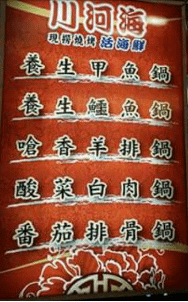 川河海
現撈燒烤 活海鮮
養生甲魚鍋
養生鱷魚鍋
嗆香羊排鍋
酸菜白肉鍋
番茄排骨鍋